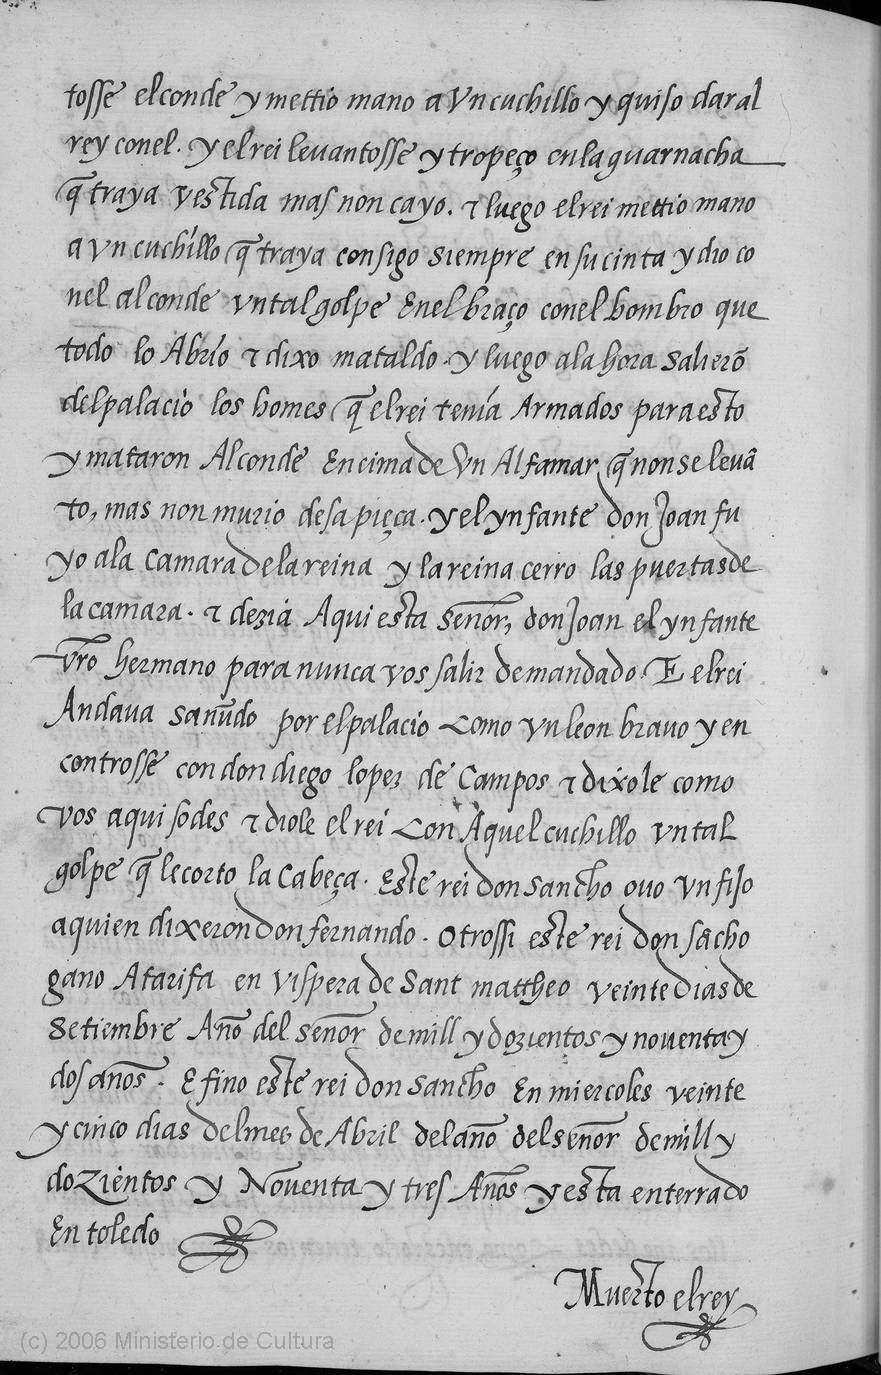 tosse el conde y mettio mano a Vn cuchillo y quiso dar al
rey con el. y el rei leuantosse y tropeço en la guarnacha
q̃ traya vestida mas non cayo. τ luego el rei mettio mano
a vn cuchillo q̃ traya consigo siempre en su cinta y dio co
nel al conde vn tal golpe Enel braço con el hombro que
todo lo Abrio τ dixo mataldo. y luego ala hora salierõ
del palacio los homes q̃ el rei tenía Armados para esto
y mataron Al conde Encima de Vn Alfamar, q̃ non se leuã
to, mas non murio desa pieça. y el ynfante don Joan fu
yo ala Camara de la reina y la reina cerro las puertas de
la camara. τ dezia Aqui esta señor, don Joan el ynfante
vr̃o hermano para nunca vos salir de mandado. E el rei
Andaua sañudo por el palacio Como vn leon brauo y en
controsse con don diego lopez de Campos τ dixole como
vos aqui sodes τ diole el rei Con Aquel cuchillo vn tal
golpe q̃ le corto la Cabeça. Este rei don Sancho ouo vn fijo
a quien dixeron don fernando. Otrossi este rei don sãcho
gano A tarifa en vispera de Sant mattheo veinte dias de
Setiembre Año del señor de mill y dozientos y nouenta y
dos años. E fino este rei don Sancho En miercoles veinte
y cinco dias del mes de Abril del año del señor de mill y
doZientos y Nouenta y tres Años y esta enterrado
En toledo
Muerto el rey
(c) 2006 Ministerio de Cultura